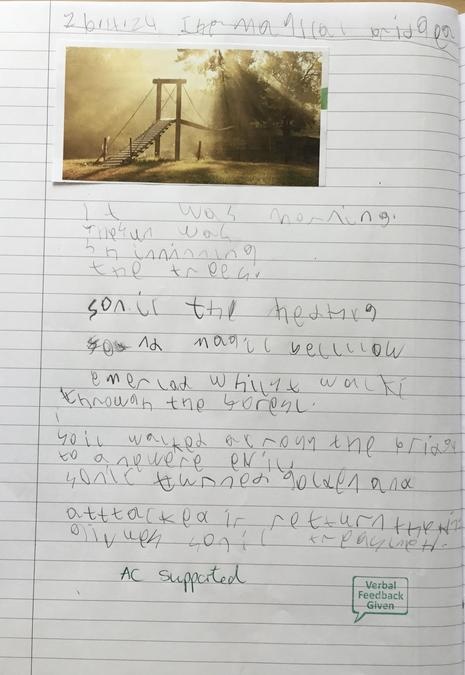 26.11.24 The magical bridge
It was morning.
The sun was
shinining
the trees.
sonic the hedhrg
magic yelllow
emerlad whilst walki
through the forest.
sonic walked across the bridg
to anewere
sonic turned golden and
atttacked return the
givues sonic
AC supported
Verbal
Feedback
Given